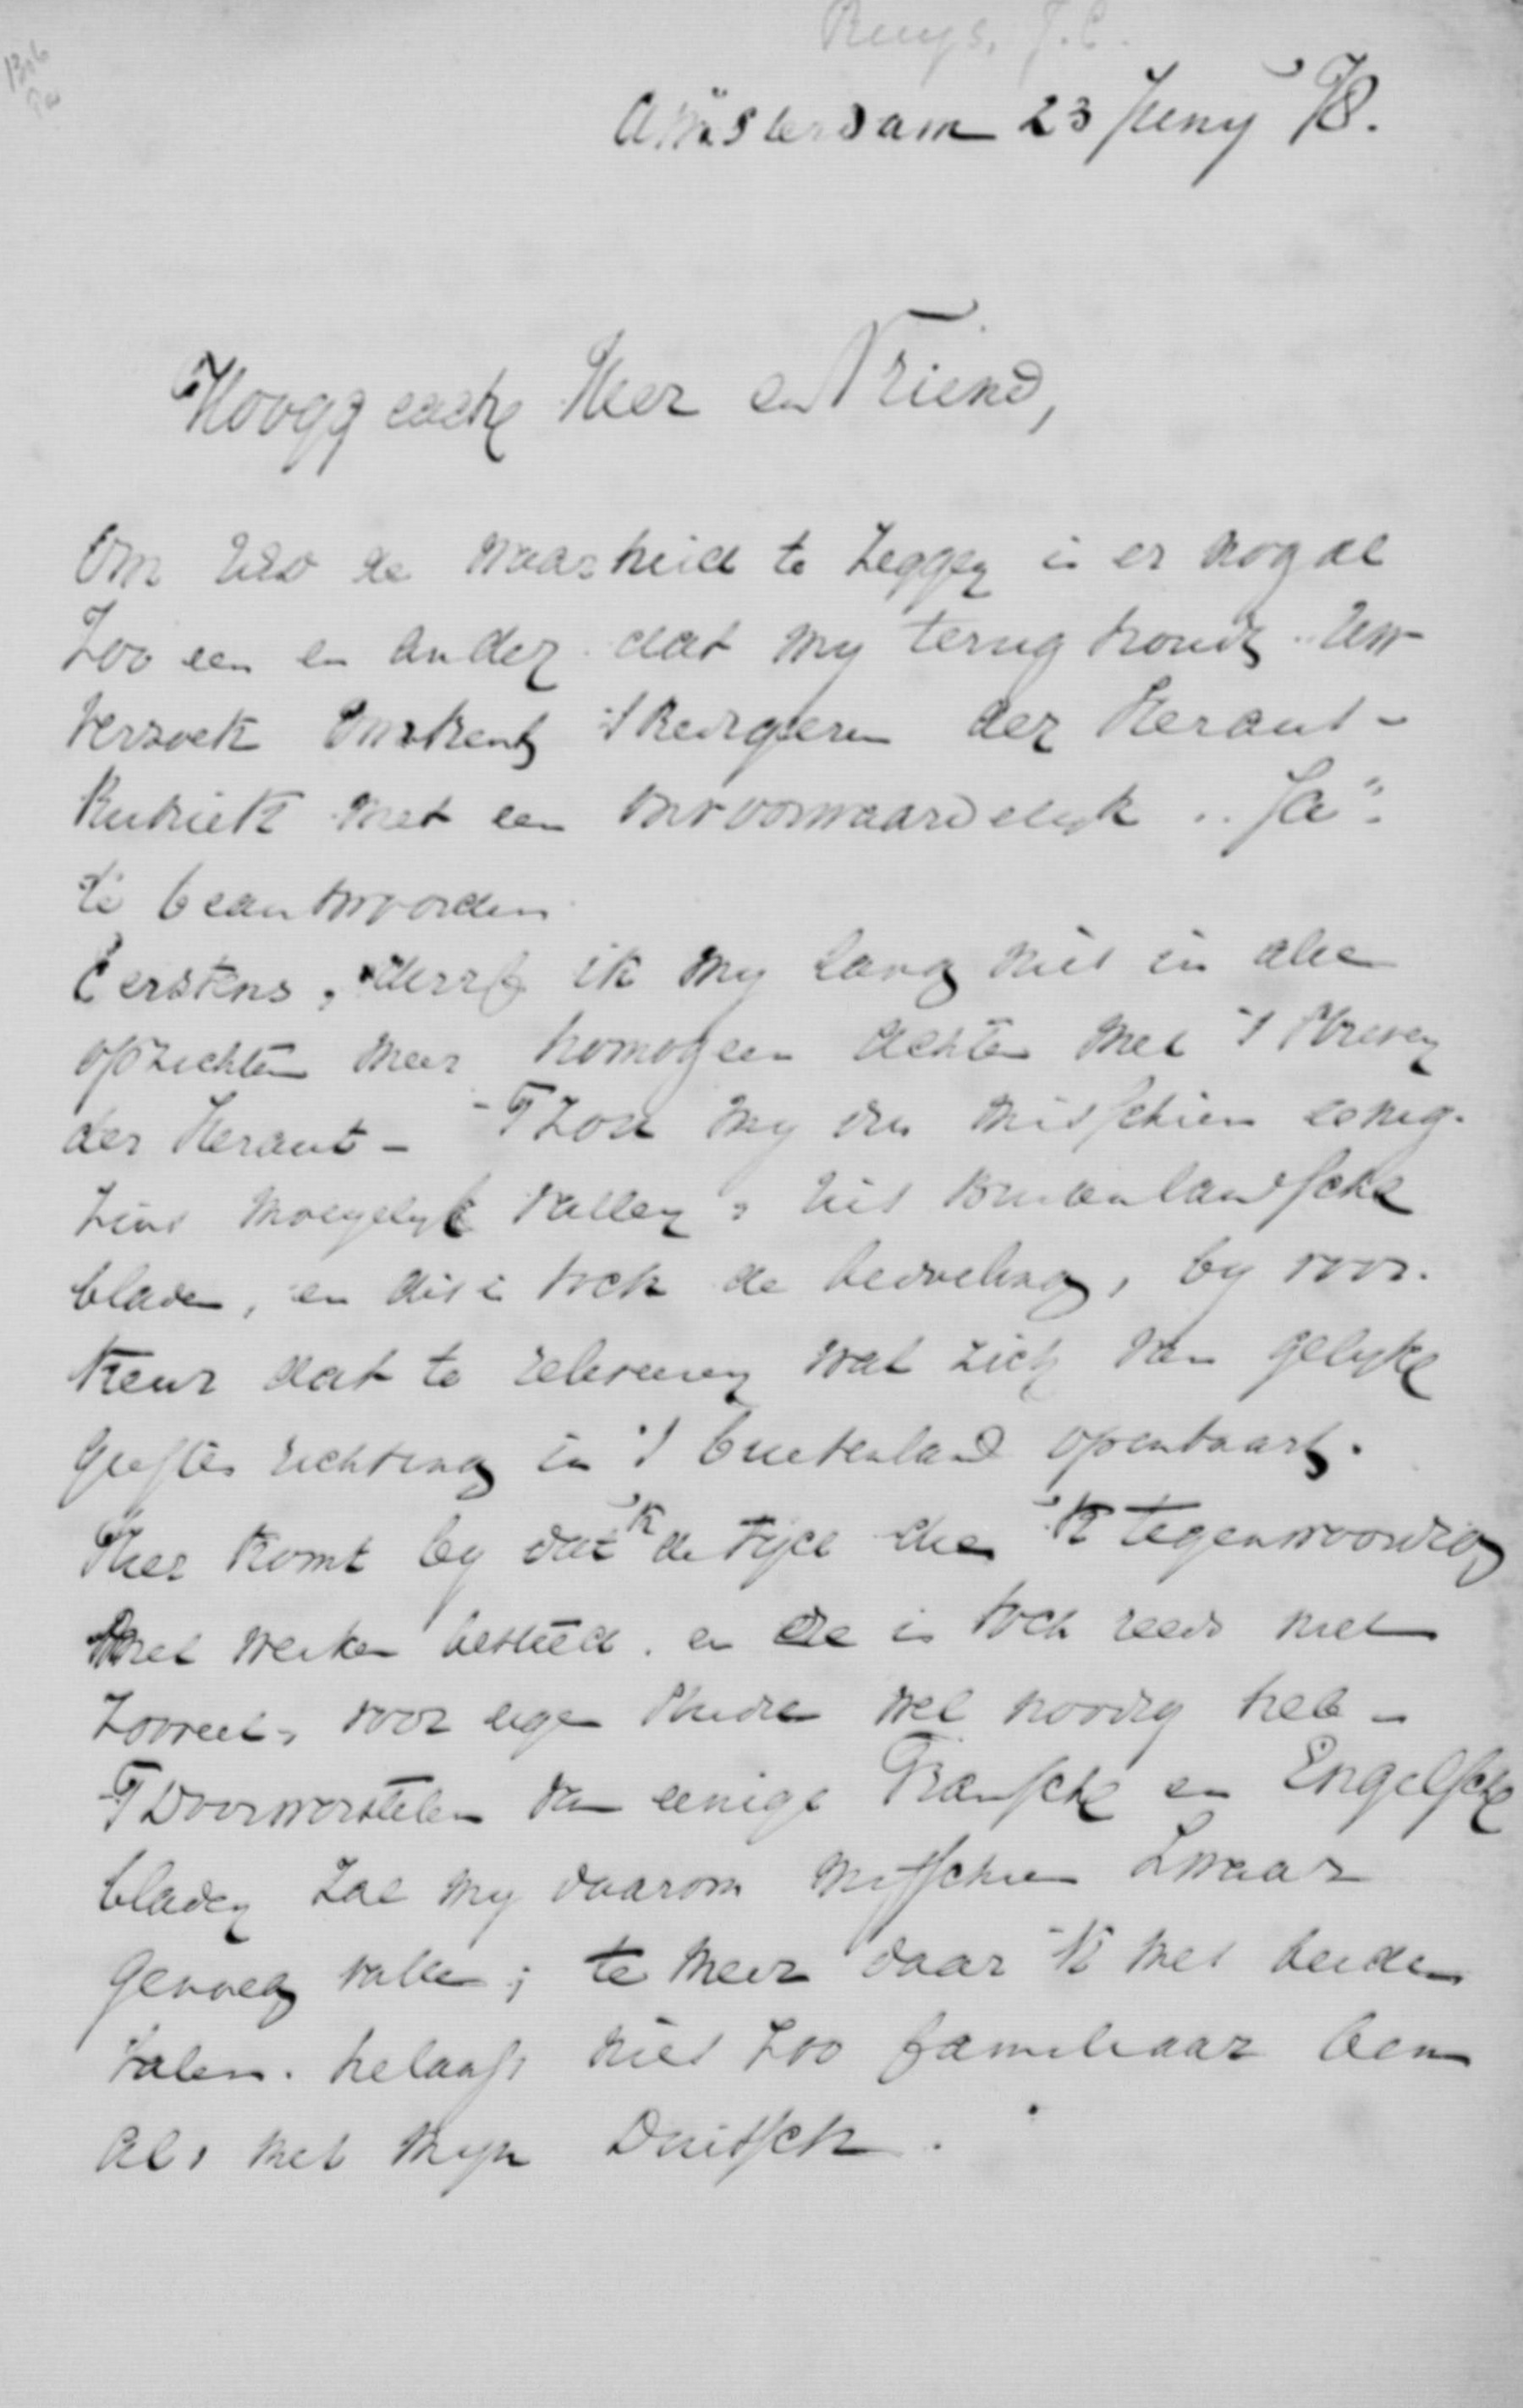 Ruys, J.C.
Amsterdam 23 Juny 78.
Hooggeachte Heer en Vriend,
Om U de waarheid te zeggen is er nog al
Zoo een en ander dat my terug houdt Uw
verzoek omtrent 't Redigeren der Heraut-
Rubriek met een onvoorwaardelyk „Ja"
te beantwoorden
Eerstens, durf ik my lang niet in alle
opzichten meer homogeen achten met 't streven
der Heraut - 'T Zou my dus misschien eenig-
zins moeyelyk vallen, uit buitenlandsche
bladen, en dit is toch de bedoeling, by voor-
keur dat te releveeren wat zich van gelyke
geestes richting in 't buitenland openbaart.
Hier komt by dat 'k de tyd die 'k tegenwoordig
met werken besteed. en die is toch reeds niet
zooveel, voor eigen studie wel noodig heb -
'T Doorworstelen van eenige Fransche en Engelsche
bladen zal my daarom misschien zwaar
genoeg vallen; te meer daar 'k met beide
talen. helaas niet zoo familiaar ben
als met myn Duitsch.